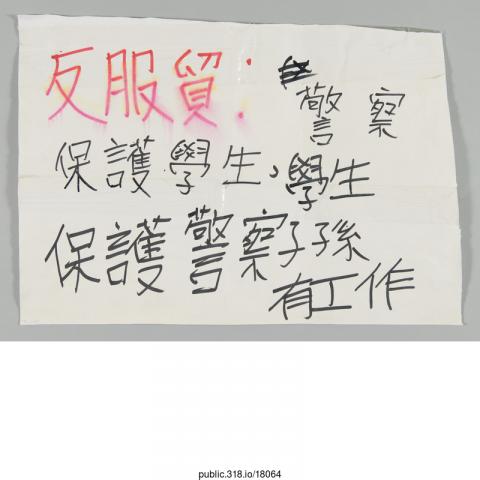 反服貿：警察
保護學生，學生
保護警察子子孫
有工作
public.318.io/18064